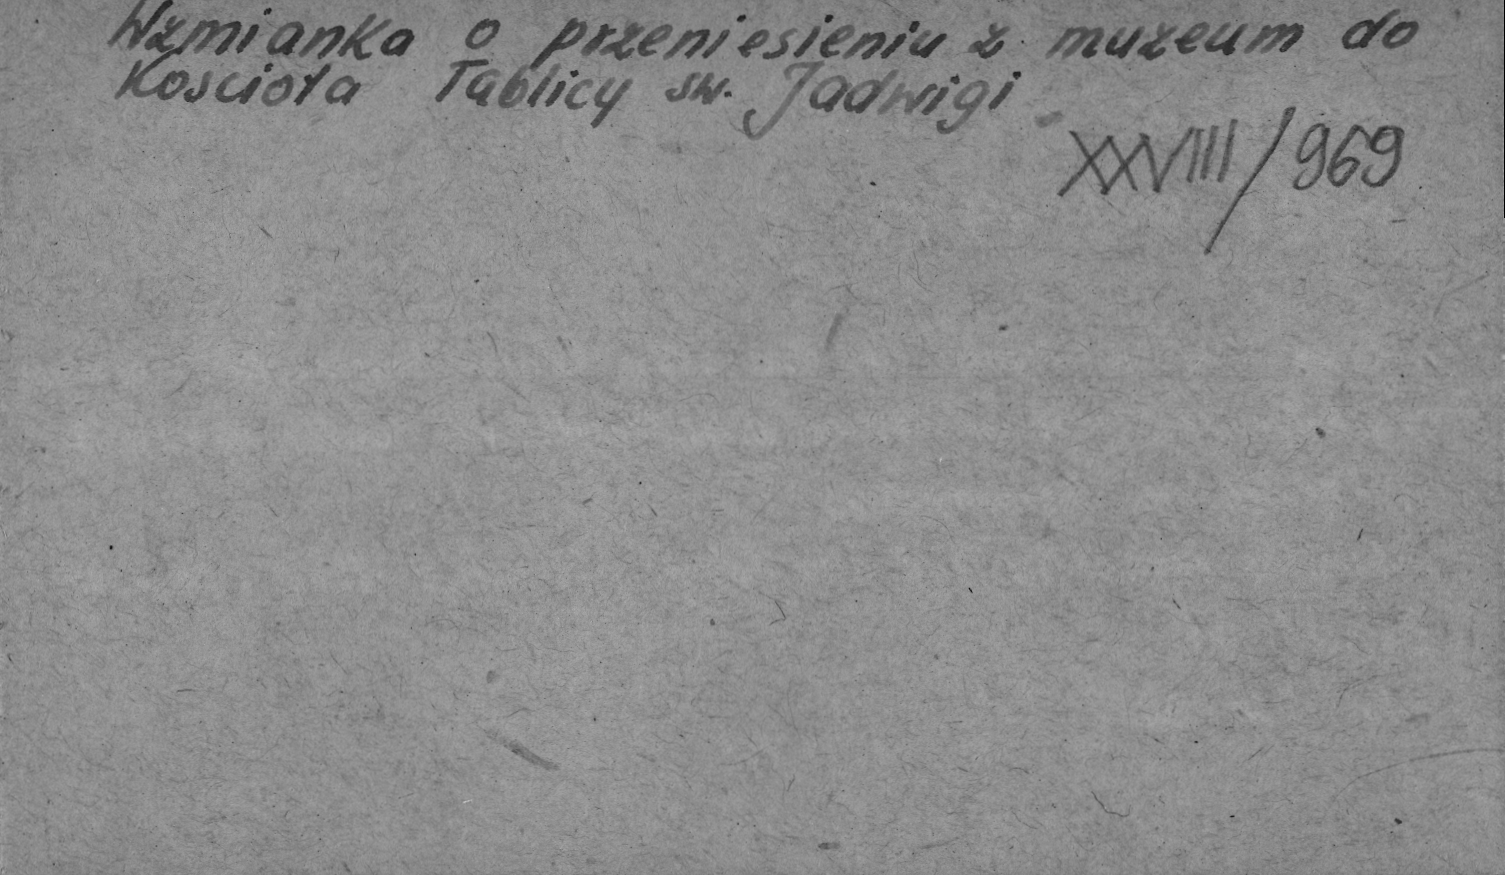 Wzmianka o przeniesieniu z muzeum do
Kościoła Tablicy św. Jadwigi
XXVIII/969